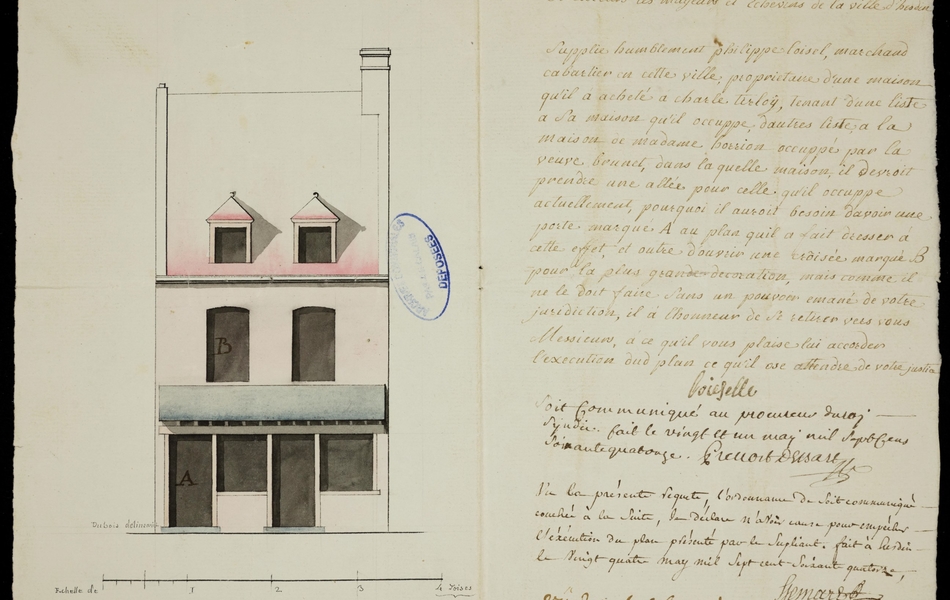 les majeurs et Echevins de la ville d'hesdin
Supplie humblement philippe loisel, marchand
cabartier en cette ville, proprietaire d'une maison
qu'il a acheté a charle terloÿ, tenant d'une liste
a Sa maison qu'il occuppe, d'autres liste a la
maison de madame horrion occuppé par la
veuve brunet, dans laquelle maison, il devroit
prendre une allée pour celle qu'il occuppe
actuellement, pourquoi il auroit besoin davoir une
porte marque A au plan quil a fait dresser à
cette effet, et outre d'ouvrir une croisée marqué B
pour la plus grande decoration, mais comme il
ne le doit faire Sans un pouvoir emané de votre
jurisdiction, il a l'honneur de Se retirer vers vous
Messieurs, à ce qu'il vous plaise lui accorder
l'execution dud plan ce qu'il ose attendre de votre justice
Loiselle
Soit Communiqué au procureur du roy
Syndic. fait le vingt et un may mil Sept Cens
Soixante quatorze.
Vu la présente requete, l'ordonnance de Soit communiqué
couchée à la Suite, Je déclare n'avoir cause pour empêcher
l'éxécution du plan présenté par le Supliant. fait à hesdin
le Vingt quatre may mil sept cent Soixante quatorze,
B
A
Dubois delineavit
Echelle de
1
2
3
4 Toises
DEPOSÉES